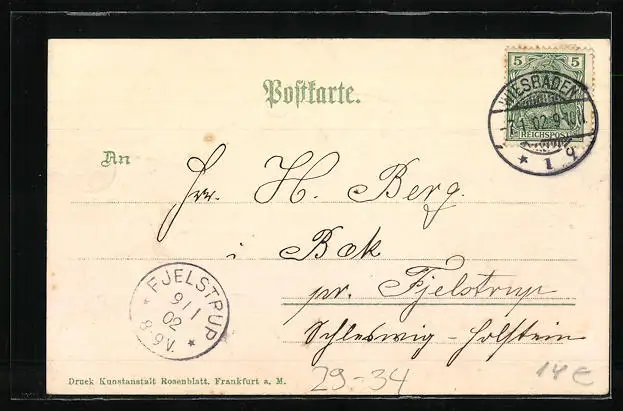 Postkarte.
5 5
REICHSPOST
WIESBADEN
02.9-10
* 1 g
An
Hrr. H. Berg.
i Bæk
pr. Fjelstrup
Schleswig-Holstein
FJELSTRUP
9/1
02
8-9V.
* *
Druck Kunstanstalt Rosenblatt, Frankfurt a. M.
29-34
14€